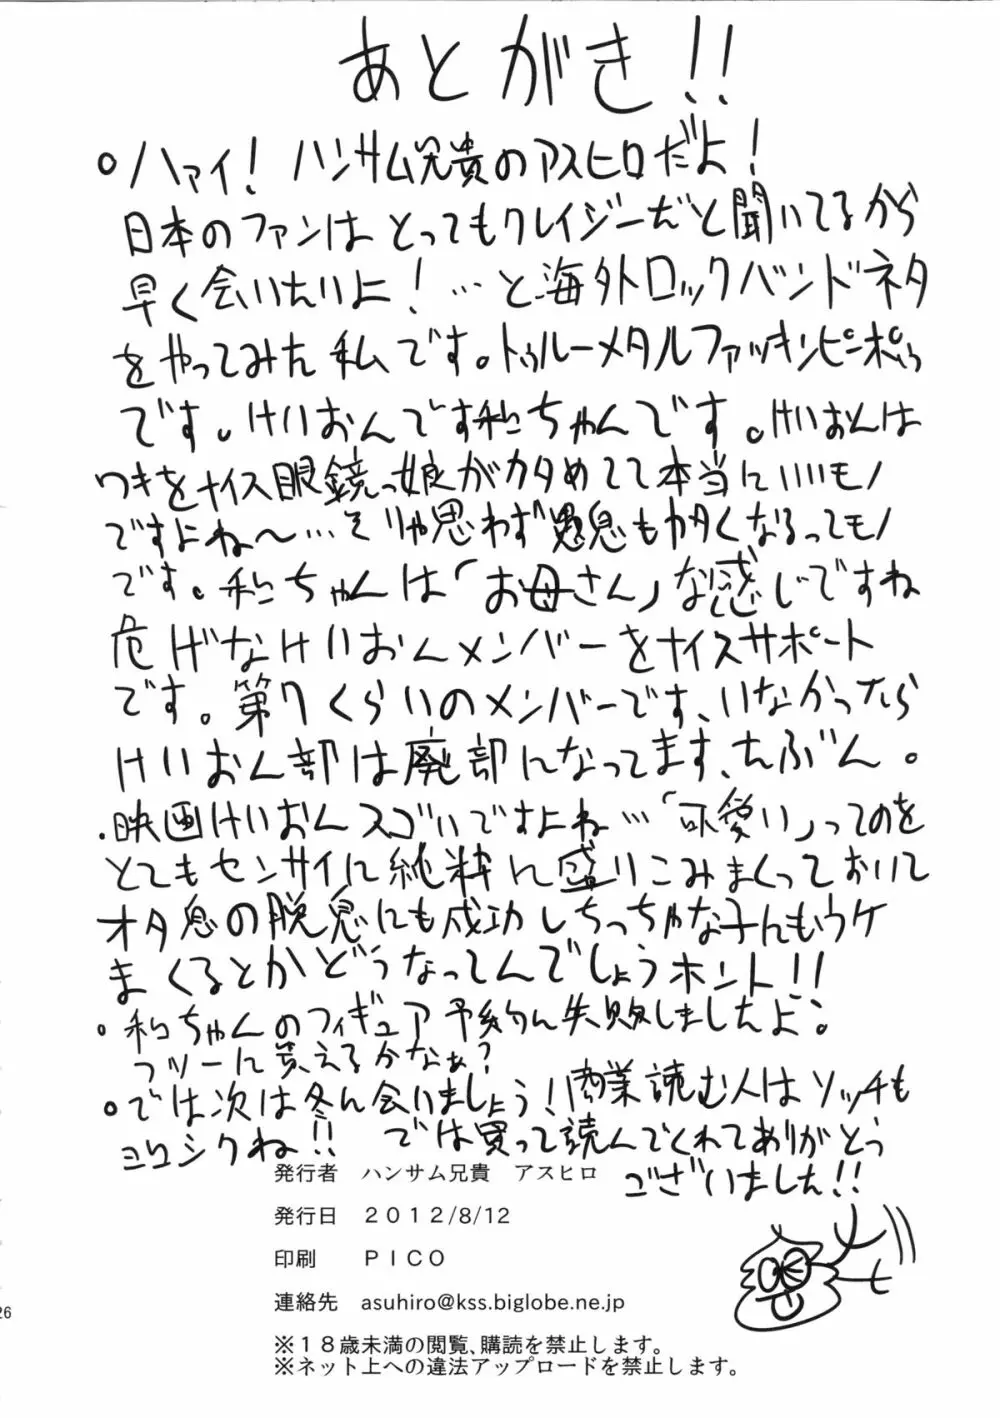 あとがき!!
。ハァイ! ハンサム兄貴のアスヒロだよ!
日本のファンはとってもクレイジーだと聞いてるから
早く会いたいよ!…と海外ロックバンドネタ
をやってみた私です。トゥルーメタルファッキンピーポゥ
です。けいおんです和ちゃんです。けいおんは
ワキをナイス眼鏡っ娘がカタめてて本当にいいモノ
ですよね〜…そりゃ思わず愚息もカタくなるってモノ
です。和ちゃんは「お母さん」な感じですね
危げなけいおんメンバーをナイスサポート
です。第7くらいのメンバーです、いなかったら
けいおん部は廃部になってます、たぶん。
・映画けいおんスゴいですよね…「可愛い」ってのを
とてもセンサイに純粋に盛りこみまくっておいて
オタ息の脱息にも成功しちっちゃな子んもウケ
まくるとかどうなってんでしょうホント!!
。和ちゃんのフィギュア予約ん失敗しましたよ。
フツーに貰えるかなぁ?
。では次は冬ん会いましょう!商業読む人はソッチも
ヨロシクね!! では買って読んでくれてありがとう
ございました!!
発行者 ハンサム兄貴 アスヒロ
発行日 2012/8/12
印刷 PICO
連絡先 asuhiro@kss.biglobe.ne.jp
※18歳未満の閲覧、購読を禁止します。
※ネット上への違法アップロードを禁止します。
26